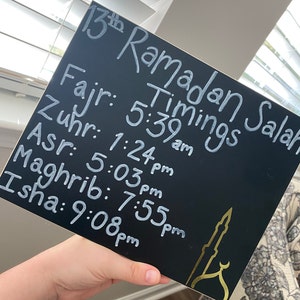 13th Ramadan Salah
Timings
Fajr: 5:39am
Zuhr: 1:24pm
Asr: 5:03pm
Maghrib: 7:55pm
Isha: 9:08pm